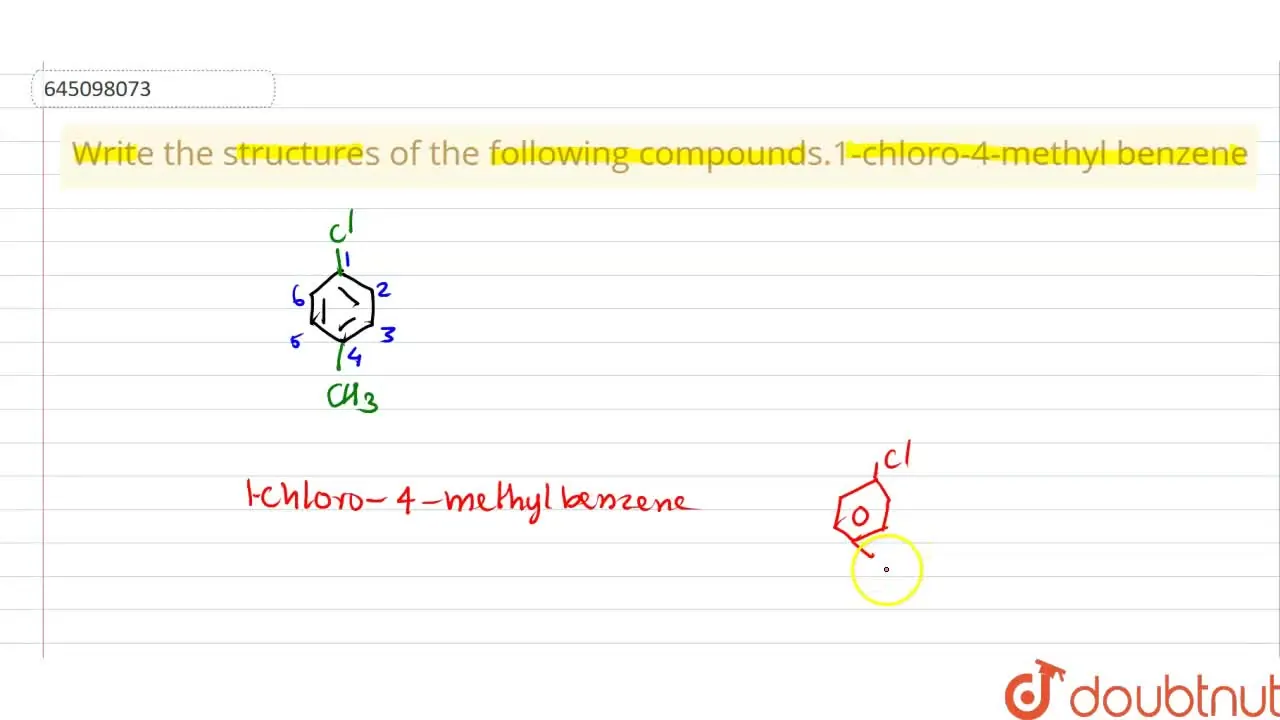 645098073
Write the structures of the following compounds.1-chloro-4-methyl benzene
Cl
1
6 2
5 3
4
CH3
1-Chloro-4-methylbenzene
Cl
doubtnut